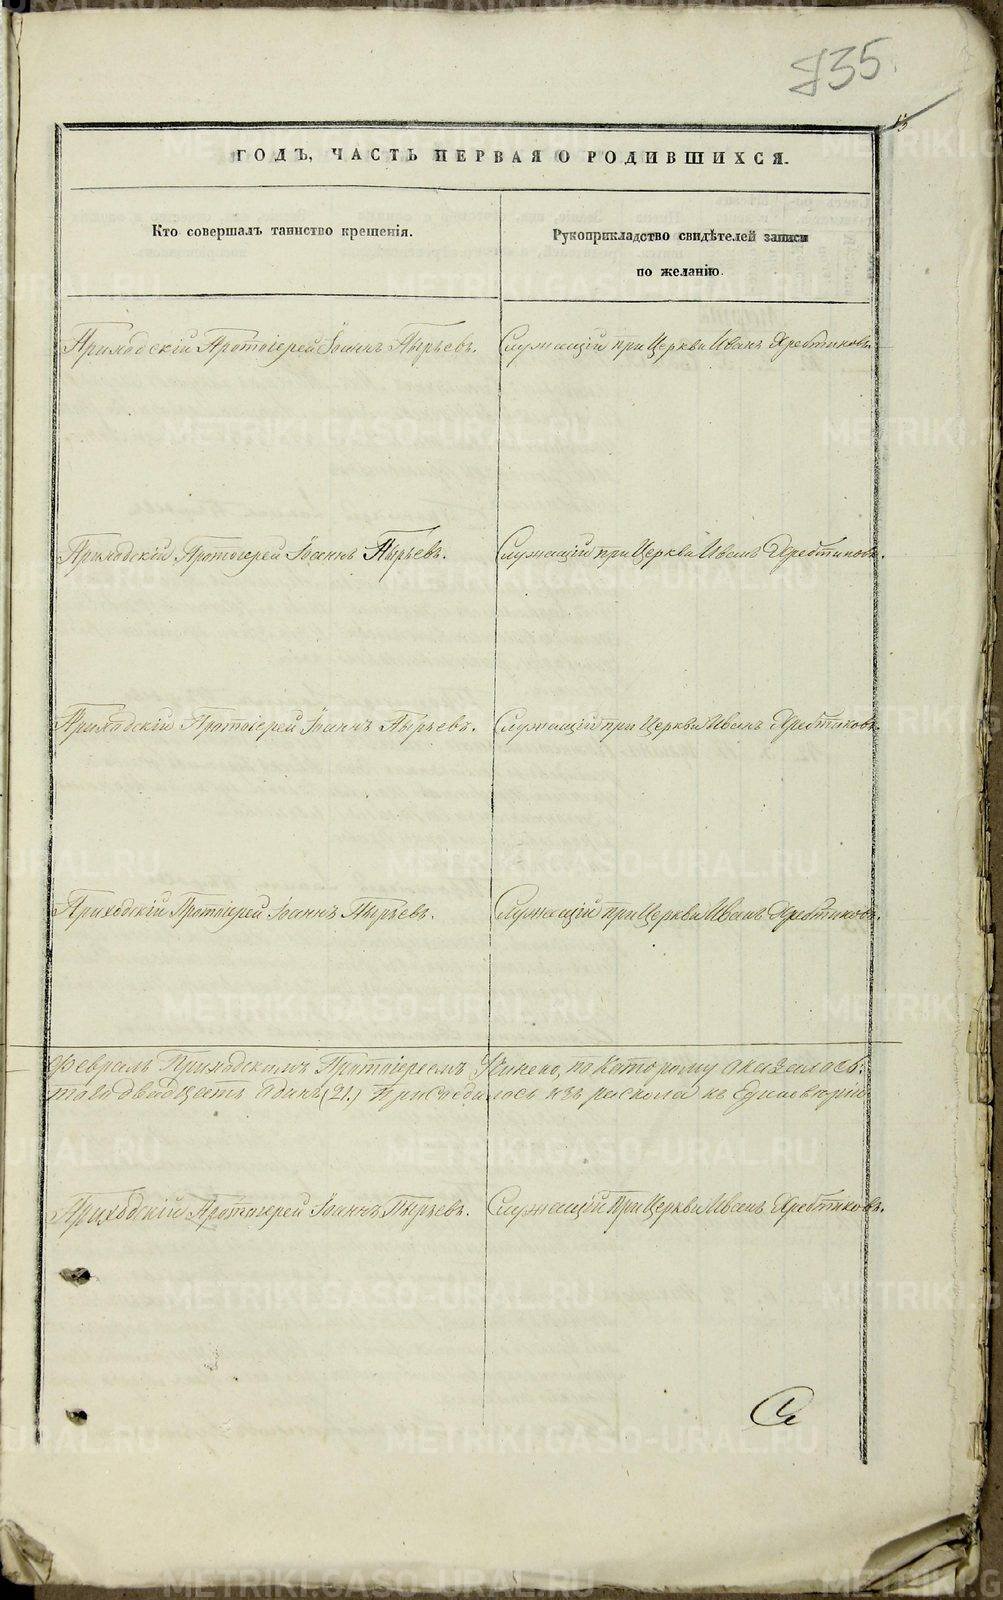 735
ГОДЪ, ЧАСТЬ ПЕРВАЯ О РОДИВШИХСЯ.
Кто совершалъ таинство крещенія.
Рукоприкладство свидѣтелей записи
по желанію.
Приходскій Протоіерей Іоаннъ Пырьевъ.
Служащій при Церкви Иванъ Хребтиковъ.
Приходскій Протоіерей Іоаннъ Пырьевъ.
Служащій при Церкви Иванъ Хребтиковъ.
Приходскій Протоіерей Іоаннъ Пырьевъ.
Служащій при Церкви Иванъ Хребтиковъ.
Приходскій Протоіерей Іоаннъ Пырьевъ.
Служащій при Церкви Иванъ Хребтиковъ.
Февраль Приходскимъ Протоіереемъ по которому оказалось:
двадцать одинъ (21.) присоединилось изъ раскола къ Единовѣрію
Приходскій Протоіерей Іоаннъ Пырьевъ.
Служащій при Церкви Иванъ Хребтиковъ.
METRIKI.GASO-URAL.RU